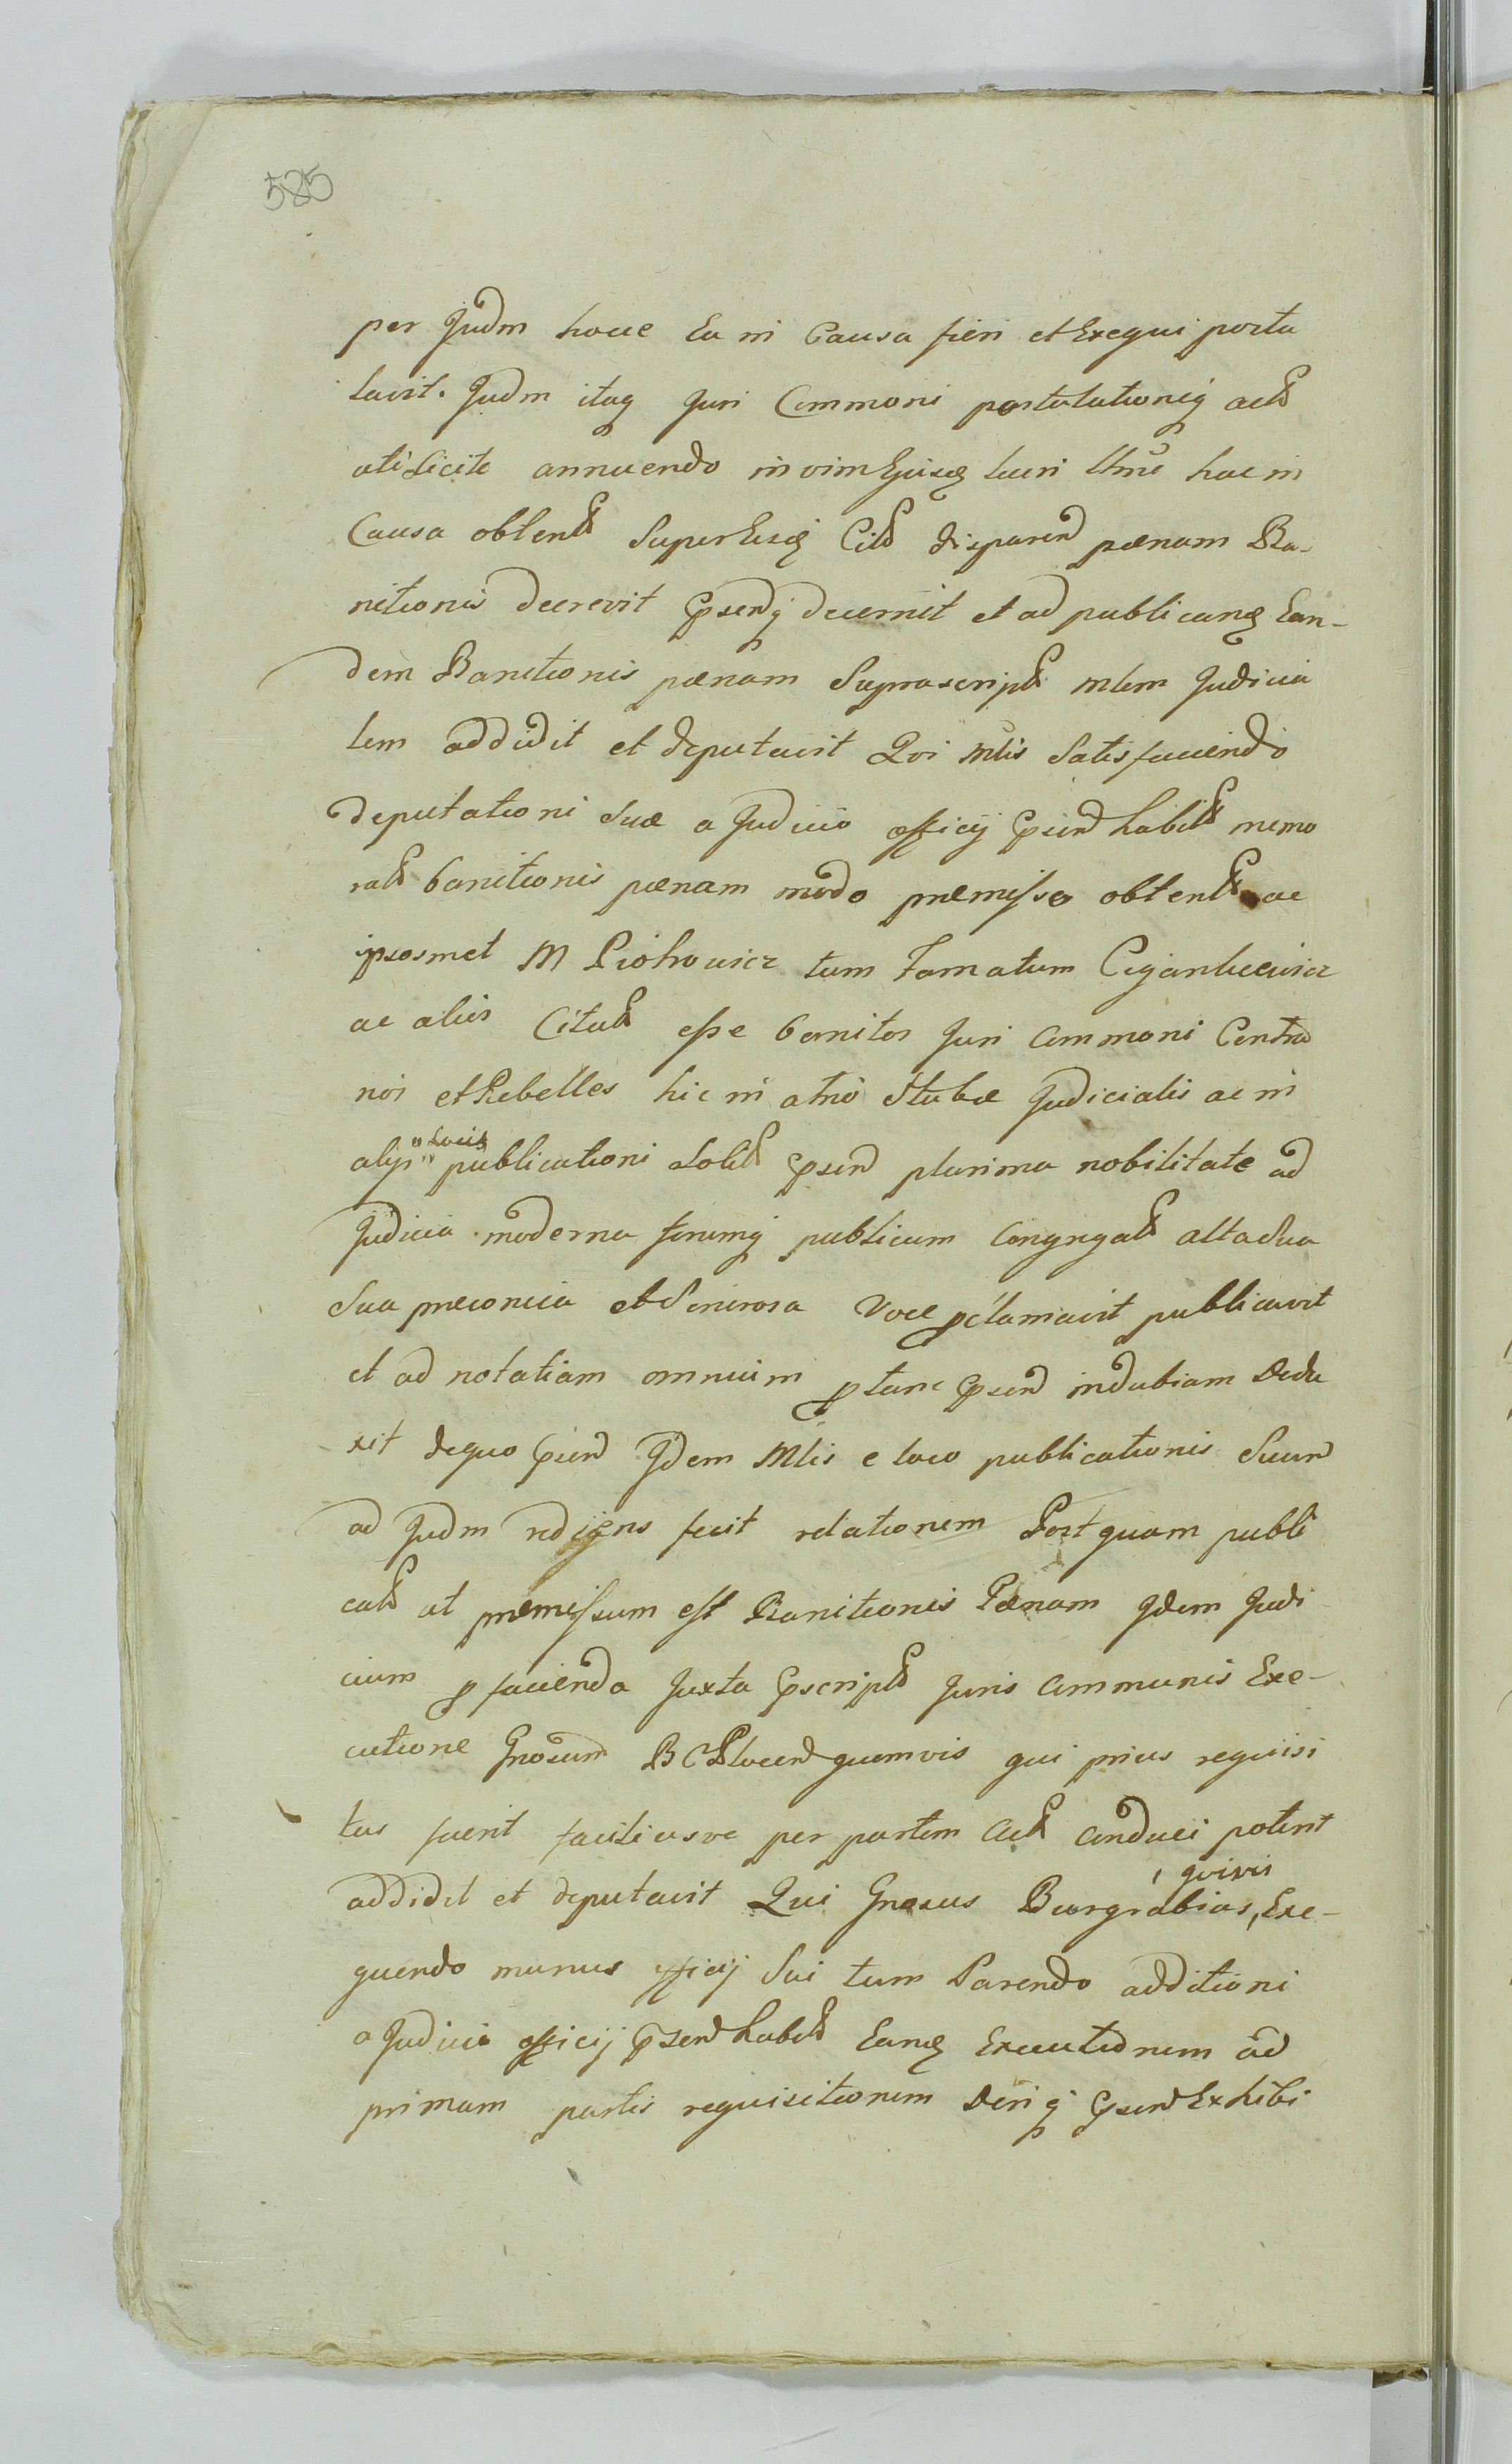 585
per Judm hocce Ea in Causa fieri et Exequi postu
lavit. Judm itaq Juri Commoni postulationiq act
uti licite annuendo in vim Ejusq lucri Ulmi hac in
Causa obtent super Eisq Cit disparen pænam Ba-
nitionis decrevit pseniq decernit et ad publicanq Ean-
dem Banitionis pænam Suprascript mlem Judicia
lem addidit et deputavit Qvi Mlis Satisfaciendo
deputationi Suæ a Judicio officij psen habit memo
rat banitionis pænam modo præmisso obtent ac
ipsosmet M Piohowicz tum Famatum Cygankiewicz
ac alios Citat esse banitos Juri Commoni Contra
rios et Rebelles hic in atrio Stubæ Judicialis ac in
alijs locis publicationi solit psen plurima nobilitate ad
Judicia moderna forumq publicum Congregat alta Sua
Sua præconica et Sonirosa Voce pclamavit publicavit
et ad notatiam omnium ptunc psen indubiam Dedu
xit dequo psen Idem Mlis e loco publicationis Suum
ad Judm rediens fecit relationem Post quam publi
cat ut præmissum est Banitionis Pænam Idem Judi
cium p facienda Juxta pscript Juris Communis Exe-
cutione Gnosum B C Plocen quemvis qui prius requisi
tus fuerit faciliusve per partem Act Conduci poterit
addidit et deputavit Qui Gnosus Burgrabius, qvivis Exe-
quendo munus officij Sui tum Parendo additioni
a Judicio officij psen habit Eanq Executionem ad
primam partis requisitionem Deriq psen Exhibi